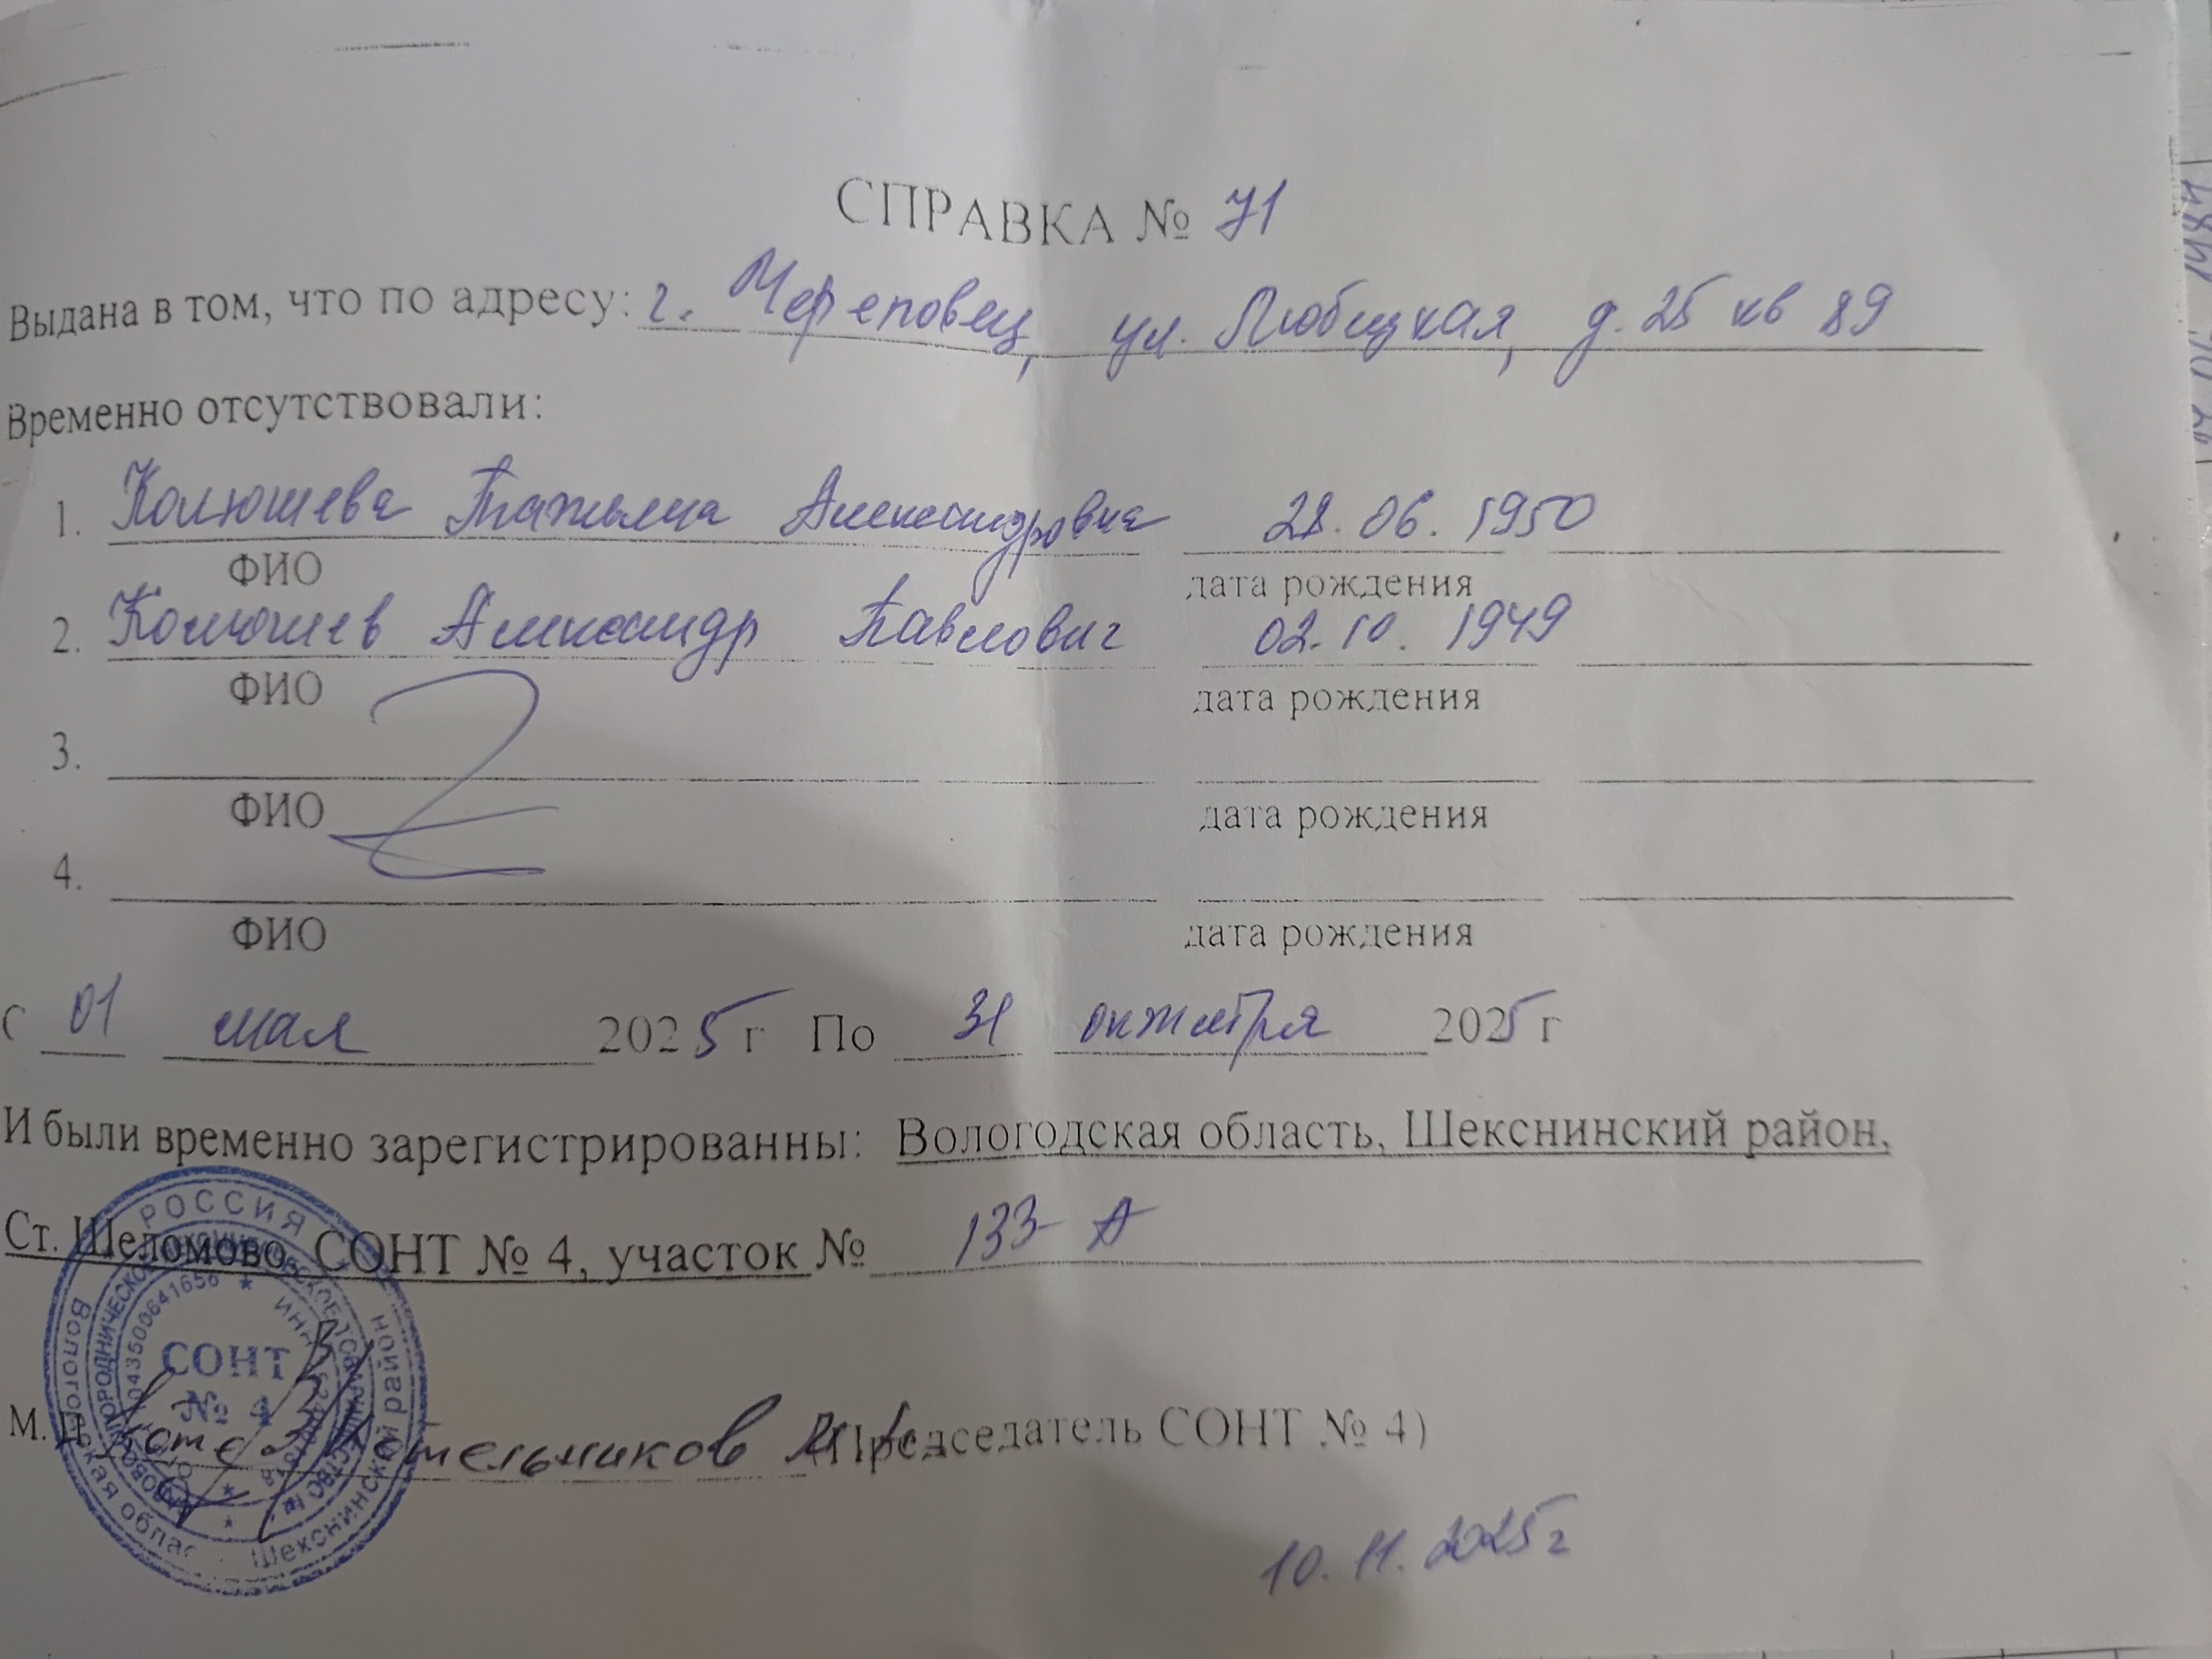 СПРАВКА № 71
Выдана в том, что по адресу: г. Череповец, ул. Любецкая, д. 25 кв 89
Временно отсутствовали:
1. Колюшева Татьяна Александровна 28.06.1950
ФИО дата рождения
2. Колюшев Александр Павлович 02.10.1949
ФИО дата рождения
3.
ФИО дата рождения
4.
ФИО дата рождения
С 01 мая 2025 г По 31 октября 2025 г
И были временно зарегистрированны: Вологодская область, Шекснинский район,
Ст. Шеломово, СОНТ № 4, участок № 133-А
РОССИЯ
Вологодская облас
Шекснинский район
СОНТ
№ 4
М.П. Котельников (Председатель СОНТ № 4)
10.11.2025г